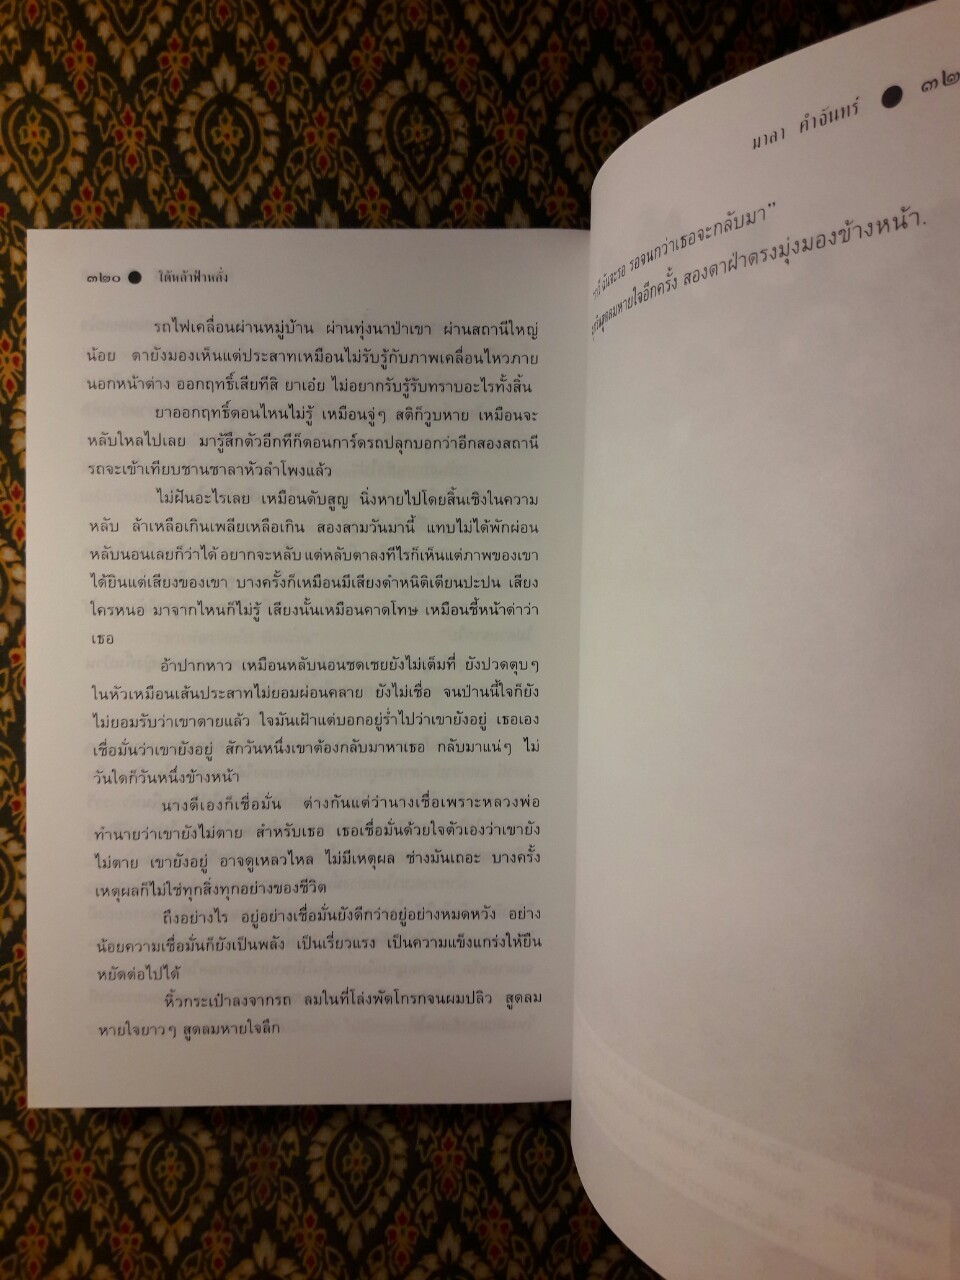 ๓๒๐ ● ใต้หล้าฟ้าหลั่ง
รถไฟเคลื่อนผ่านหมู่บ้าน ผ่านทุ่งนาป่าเขา ผ่านสถานีใหญ่
น้อย ตายังมองเห็นแต่ประสาทเหมือนไม่รับรู้กับภาพเคลื่อนไหวภาย
นอกหน้าต่าง ออกฤทธิ์เสียทีสิ ยาเอ๋ย ไม่อยากรับรู้รับทราบอะไรทั้งสิ้น
ยาออกฤทธิ์ตอนไหนไม่รู้ เหมือนจู่ๆ สติก็วูบหาย เหมือนจะ
หลับใหลไปเลย มารู้สึกตัวอีกทีก็ตอนการ์ดรถปลุกบอกว่าอีกสองสถานี
รถจะเข้าเทียบชานชาลาหัวลำโพงแล้ว
ไม่ฝันอะไรเลย เหมือนดับสูญ นิ่งหายไปโดยสิ้นเชิงในความ
หลับ ล้าเหลือเกินเพลียเหลือเกิน สองสามวันมานี้ แทบไม่ได้พักผ่อน
หลับนอนเลยก็ว่าได้ อยากจะหลับ แต่หลับตาลงทีไรก็เห็นแต่ภาพของเขา
ได้ยินแต่เสียงของเขา บางครั้งก็เหมือนมีเสียงตำหนิติเตียนปะปน เสียง
ใครหนอ มาจากไหนก็ไม่รู้ เสียงนั้นเหมือนคาดโทษ เหมือนชี้หน้าด่าว่า
เธอ
อ้าปากหาว เหมือนหลับนอนชดเชยยังไม่เต็มที่ ยังปวดตุบๆ
ในหัวเหมือนเส้นประสาทไม่ยอมผ่อนคลาย ยังไม่เชื่อ จนป่านนี้ใจก็ยัง
ไม่ยอมรับว่าเขาตายแล้ว ใจมันเฝ้าแต่บอกอยู่ร่ำไปว่าเขายังอยู่ เธอเอง
เชื่อมั่นว่าเขายังอยู่ สักวันหนึ่งเขาต้องกลับมาหาเธอ กลับมาแน่ๆ ไม่
วันใดก็วันหนึ่งข้างหน้า
นางดีเองก็เชื่อมั่น ต่างกันแต่ว่านางเชื่อเพราะหลวงพ่อ
ทำนายว่าเขายังไม่ตาย สำหรับเธอ เธอเชื่อมั่นด้วยใจตัวเองว่าเขายัง
ไม่ตาย เขายังอยู่ อาจดูเหลวไหล ไม่มีเหตุผล ช่างมันเถอะ บางครั้ง
เหตุผลก็ไม่ใช่ทุกสิ่งทุกอย่างของชีวิต
ถึงอย่างไร อยู่อย่างเชื่อมั่นยังดีกว่าอยู่อย่างหมดหวัง อย่าง
น้อยความเชื่อมั่นก็ยังเป็นพลัง เป็นเรี่ยวแรง เป็นความแข็งแกร่งให้ยืน
หยัดต่อไปได้
หิ้วกระเป๋าลงจากรถ ลมในที่โล่งพัดโกรกจนผมปลิว สูดลม
หายใจยาวๆ สูดลมหายใจลึก
มาลา คำจันทร์ ● ๓๒
ฉันจะรอ รอจนกว่าเธอจะกลับมา”
สูดลมหายใจอีกครั้ง สองตาฝ่าตรงมุ่งมองข้างหน้า.